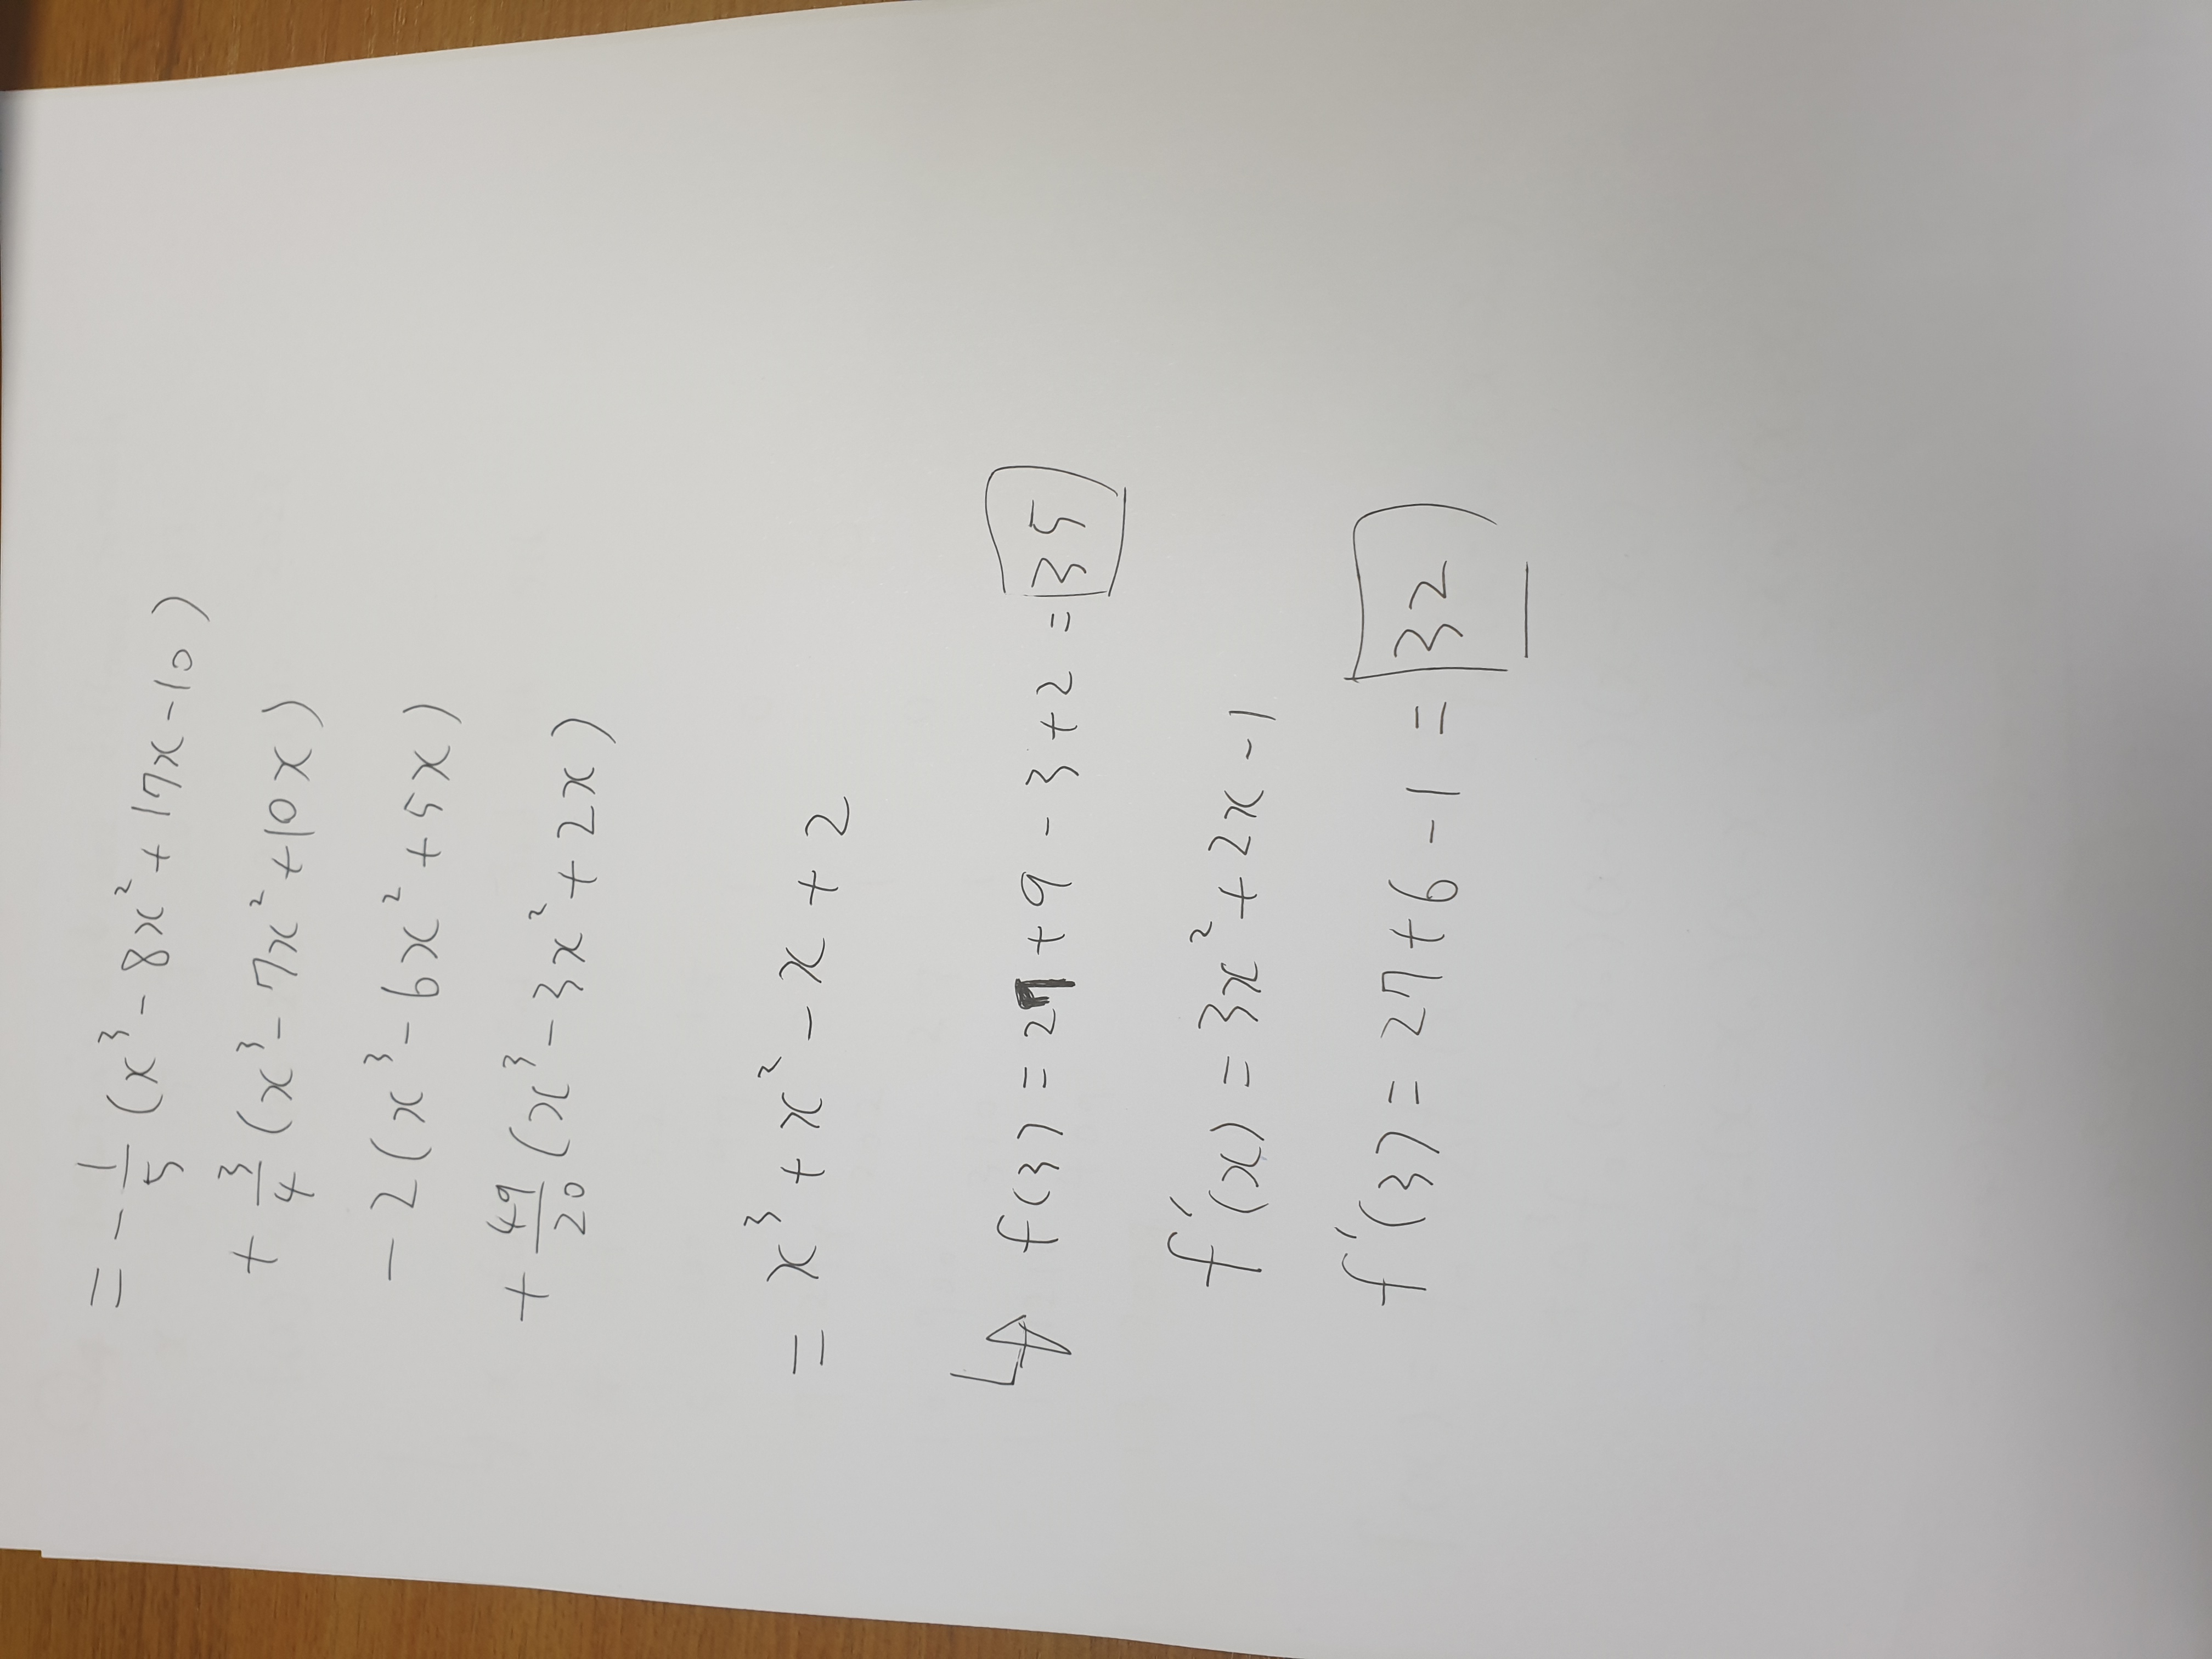 = - 1/5 (x³ - 8x² + 17x - 10)
+ 3/4 (x³ - 7x² + 10x)
- 2(x³ - 6x² + 5x)
+ 49/20 (x³ - 3x² + 2x)
= x³ + x² - x + 2
↳ f(3) = 27 + 9 - 3 + 2 = 35
f'(x) = 3x² + 2x - 1
f'(3) = 27 + 6 - 1 = 32